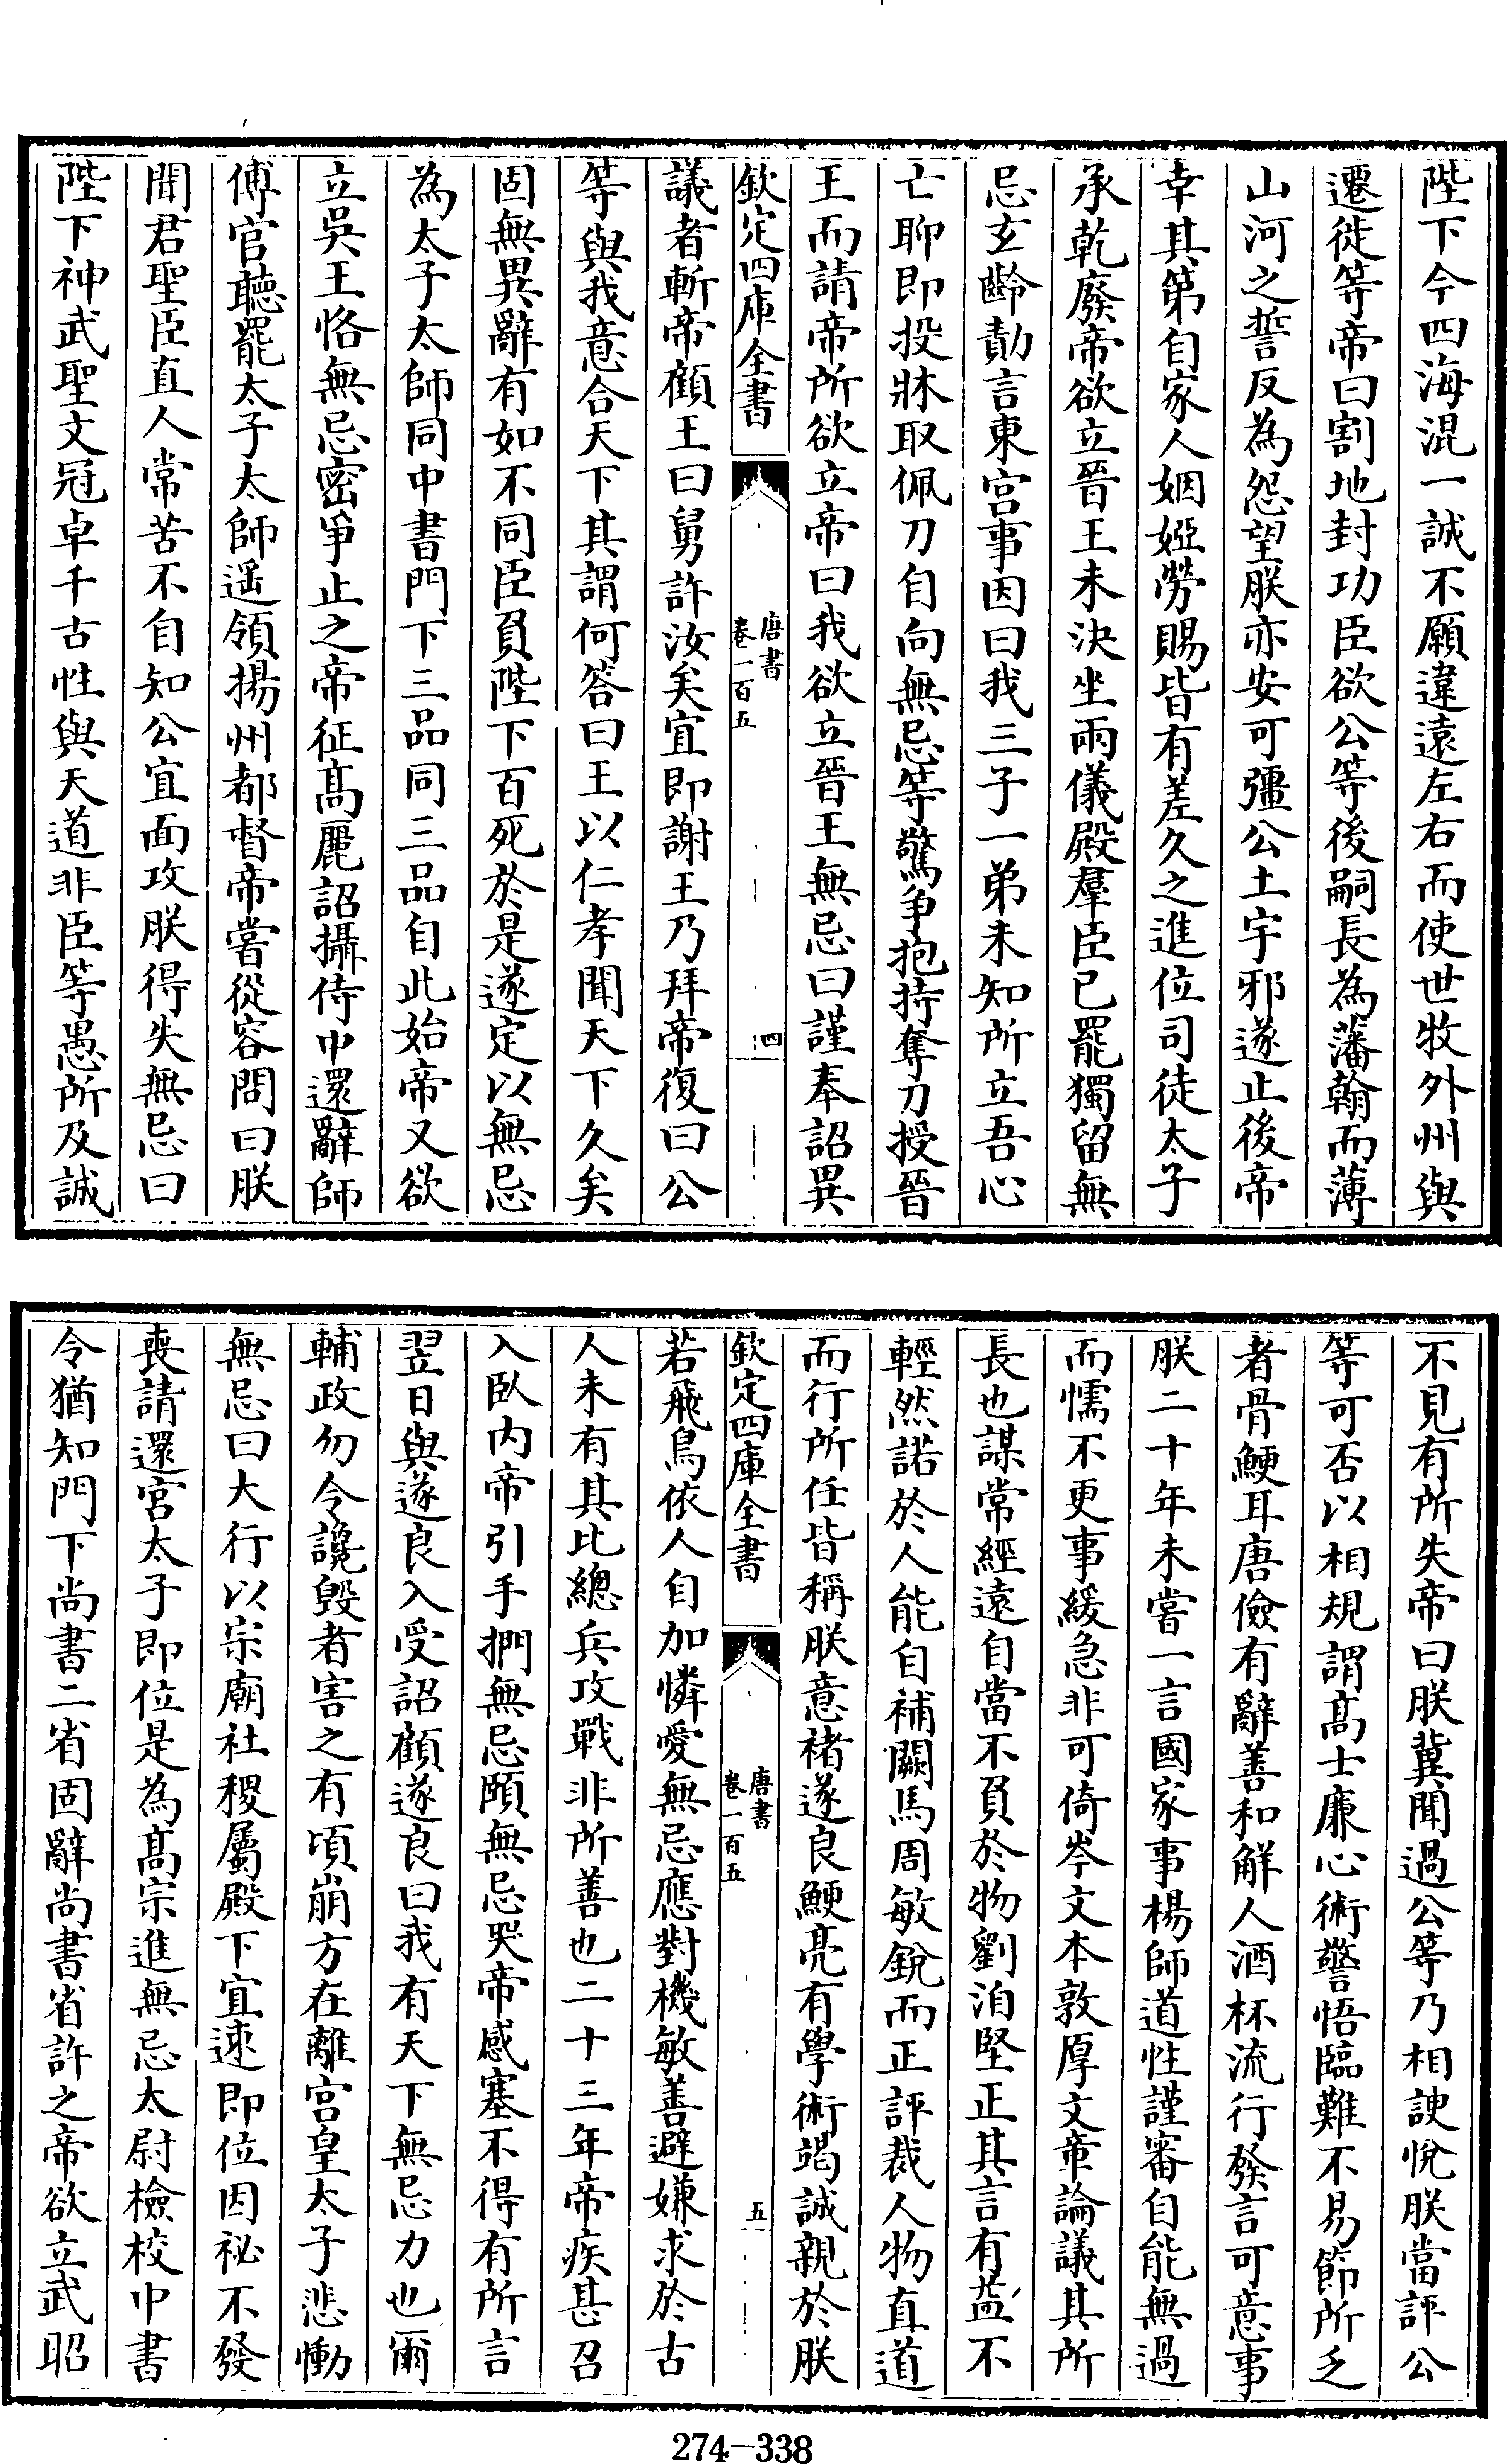 陛下今四海混一誠不願違遠左右而使世牧外州與
遷徙等帝曰割地封功臣欲公等後嗣長為藩翰而薄
山河之誓反為怨望朕亦安可彊公土宇邪遂止後帝
幸其第自家人姻婭勞賜皆有差久之進位司徒太子
承乾廢帝欲立晉王未決坐兩儀殿羣臣已罷獨留無
忌玄齡勣言東宮事因曰我三子一弟未知所立吾心
亡聊即投牀取佩刀自向無忌等驚爭抱持奪刀授晉
王而請帝所欲立帝曰我欲立晉王無忌曰謹奉詔異
欽定四庫全書
唐書
卷一百五
四
議者斬帝顧王曰舅許汝矣宜即謝王乃拜帝復曰公
等與我意合天下其謂何答曰王以仁孝聞天下久矣
固無異辭有如不同臣負陛下百死於是遂定以無忌
為太子太師同中書門下三品同三品自此始帝又欲
立吳王恪無忌密爭止之帝征髙麗詔攝侍中還辭師
傅官聽罷太子太師遥領揚州都督帝嘗從容問曰朕
聞君聖臣直人常苦不自知公宜面攻朕得失無忌曰
陛下神武聖文冠卓千古性與天道非臣等愚所及誠
不見有所失帝曰朕冀聞過公等乃相諛悅朕當評公
等可否以相規謂髙士廉心術警悟臨難不易節所乏
者骨鯁耳唐儉有辭善和解人酒杯流行發言可意事
朕二十年未嘗一言國家事楊師道性謹審自能無過
而懦不更事緩急非可倚岑文本敦厚文章論議其所
長也謀常經遠自當不負於物劉洎堅正其言有益不
輕然諾於人能自補闕馬周敏銳而正評裁人物直道
而行所任皆稱朕意褚遂良鯁亮有學術竭誠親於朕
欽定四庫全書
唐書
卷一百五
五
若飛鳥依人自加憐愛無忌應對機敏善避嫌求於古
人未有其比總兵攻戰非所善也二十三年帝疾甚召
入臥內帝引手捫無忌頤無忌哭帝感塞不得有所言
翌日與遂良入受詔顧遂良曰我有天下無忌力也爾
輔政勿令讒毀者害之有頃崩方在離宮皇太子悲慟
無忌曰大行以宗廟社稷屬殿下宜速即位因祕不發
喪請還宮太子即位是為髙宗進無忌太尉檢校中書
令猶知門下尚書二省固辭尚書省許之帝欲立武昭
274-338